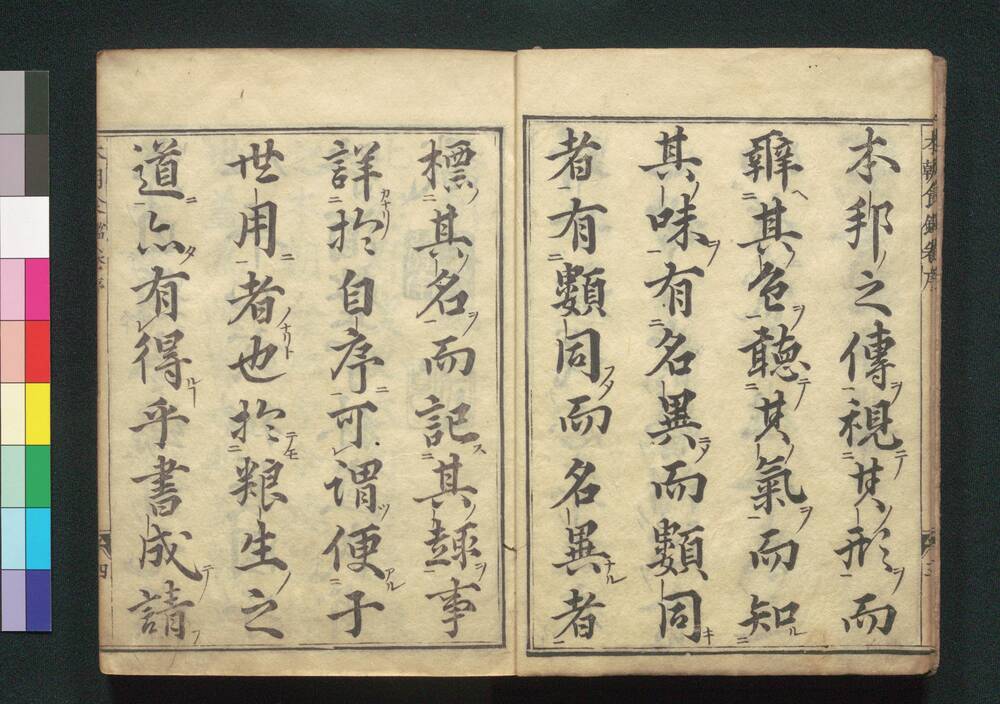 本邦之傳視其形而
辨其色聴其氣而知
其味有名異而類同
者有類同而名異者
標其名而記其趣事
詳於自序可謂便于
世用者也於粮生之
道亦有得乎書成請
本朝食鑑巻序
三
四